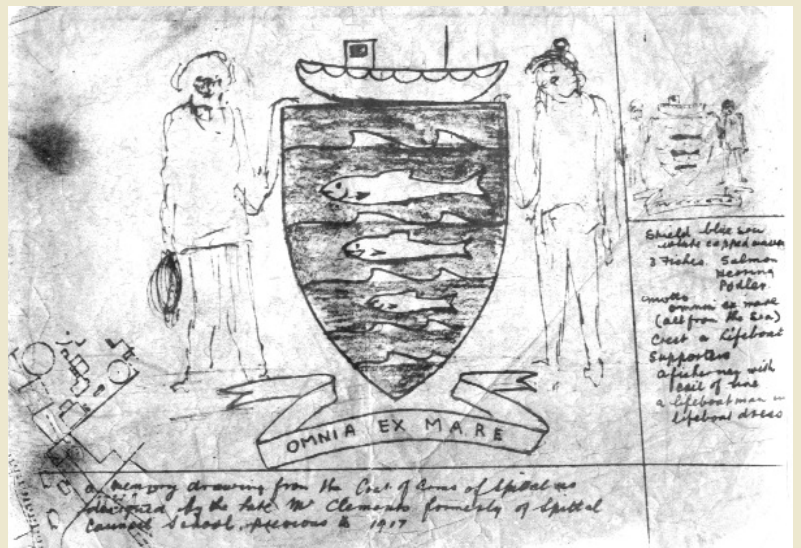 OMNIA EX MARE
Shield blue sea
white capped waves
3 Fishes. Salmon
Herring
Podler.
motto
omnia ex mare
(all from the Sea)
Crest a Lifeboat
Supporters
a fisher with
coil of line
a lifeboatman in
lifeboat dress
a memory drawing from the Coat of Arms of Spittal as
designed by the late Mr Clements formerly of Spittal
Council School, previous to 1917